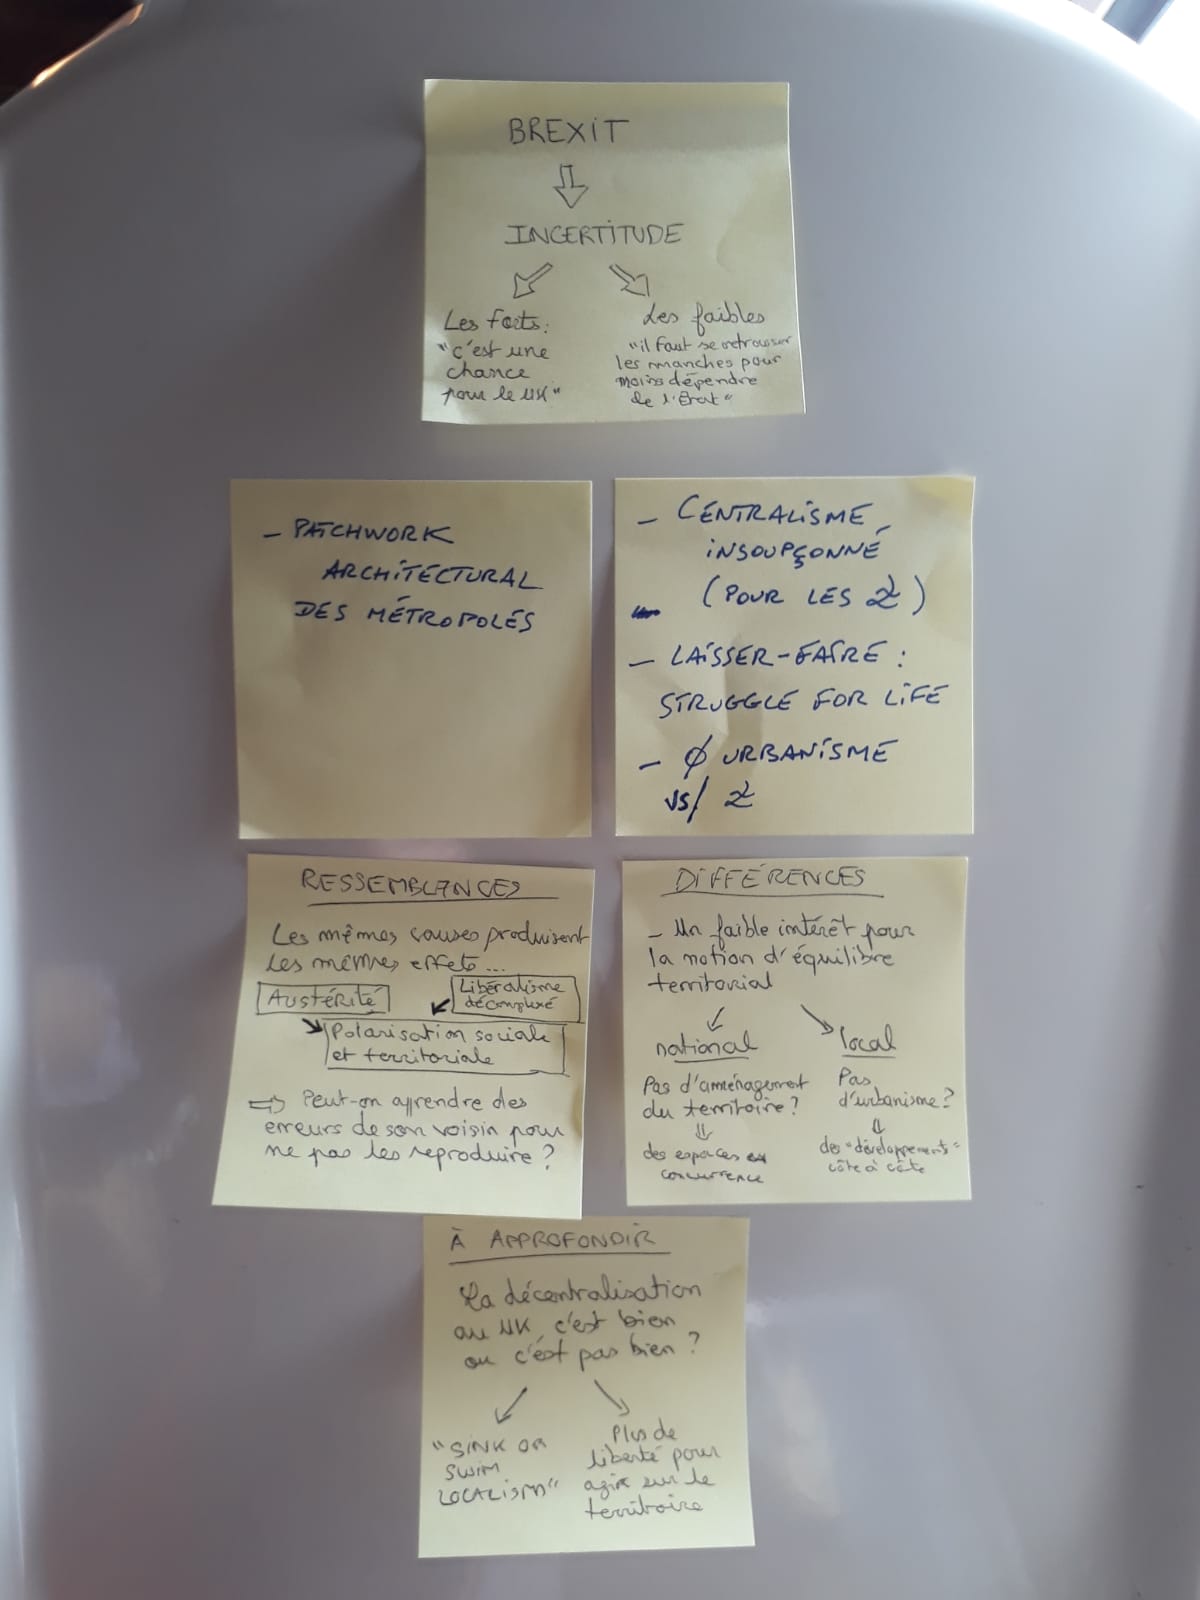 BREXIT
⇓
INCERTITUDE
Les forts:
"c'est une
chance
pour le UK"
Les faibles
"il faut se retrousser
les manches pour
moins dépendre
de l'État"
- PATCHWORK
ARCHITECTURAL
DES MÉTROPOLES
- CENTRALISME
INSOUPÇONNÉ
(POUR LES )
- LAISSER-FAIRE :
STRUGGLE FOR LIFE
- Ø URBANISME
vs/
RESSEMBLANCES
Les mêmes causes produisent
les mêmes effets...
Austérité
Libéralisme
décomplexé
Polarisation sociale
et territoriale
⇒ Peut-on apprendre des
erreurs de son voisin pour
ne pas les reproduire ?
DIFFÉRENCES
- Un faible intérêt pour
la notion d'équilibre
territorial
national
Pas d'aménagement
du territoire ?
⇓
des espaces en
concurrence
local
Pas
d'urbanisme ?
⇓
des "développements"
côte à côte
À APPROFONDIR
La décentralisation
au UK, c'est bien
ou c'est pas bien ?
"SINK OR
SWIM
LOCALISM"
Plus de
liberté pour
agir sur le
territoire